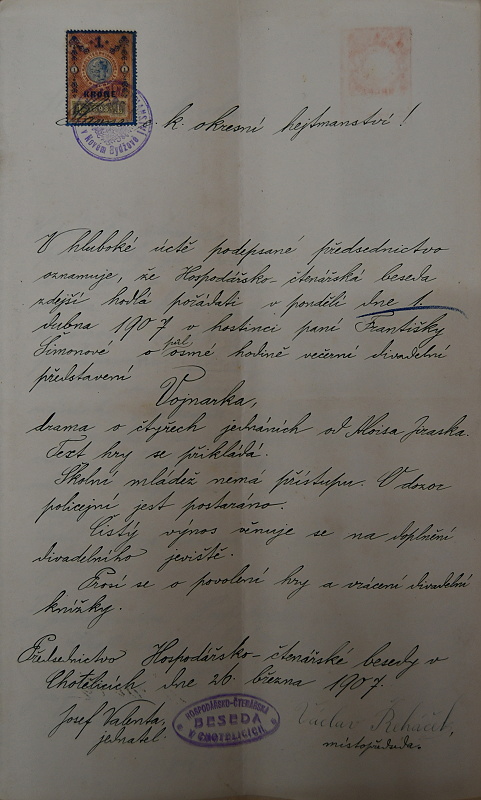 1
KRONE
v Novém Bydžově
k. okresní hejtmanství!
V hluboké úctě podepsané předsednictvo
oznamuje, že Hospodářsko-čtenářská beseda
zdejší hodlá pořádati v pondělí dne 1.
dubna 1907 v hostinci paní Františky
Šimonové o půl osmé hodině večerní divadelní
představení
Vojnarka,
drama o čtyřech jednáních od Aloisa Jiraska.
Text hry se přikládá.
Školní mládež nemá přístupu. O dozor
policejní jest postaráno.
Čistý výnos věnuje se na doplnění
divadelního jeviště.
Prosí se o povolení hry a vrácení divadelní
knížky.
Předsednictvo Hospodářsko-čtenářské besedy v
Chotělicích dne 26. března 1907.
Josef Valenta,
jednatel.
HOSPODÁŘSKO-ČTENÁŘSKÁ
BESEDA
V CHOTĚLICÍCH
Václav Řeháček,
místopředseda.